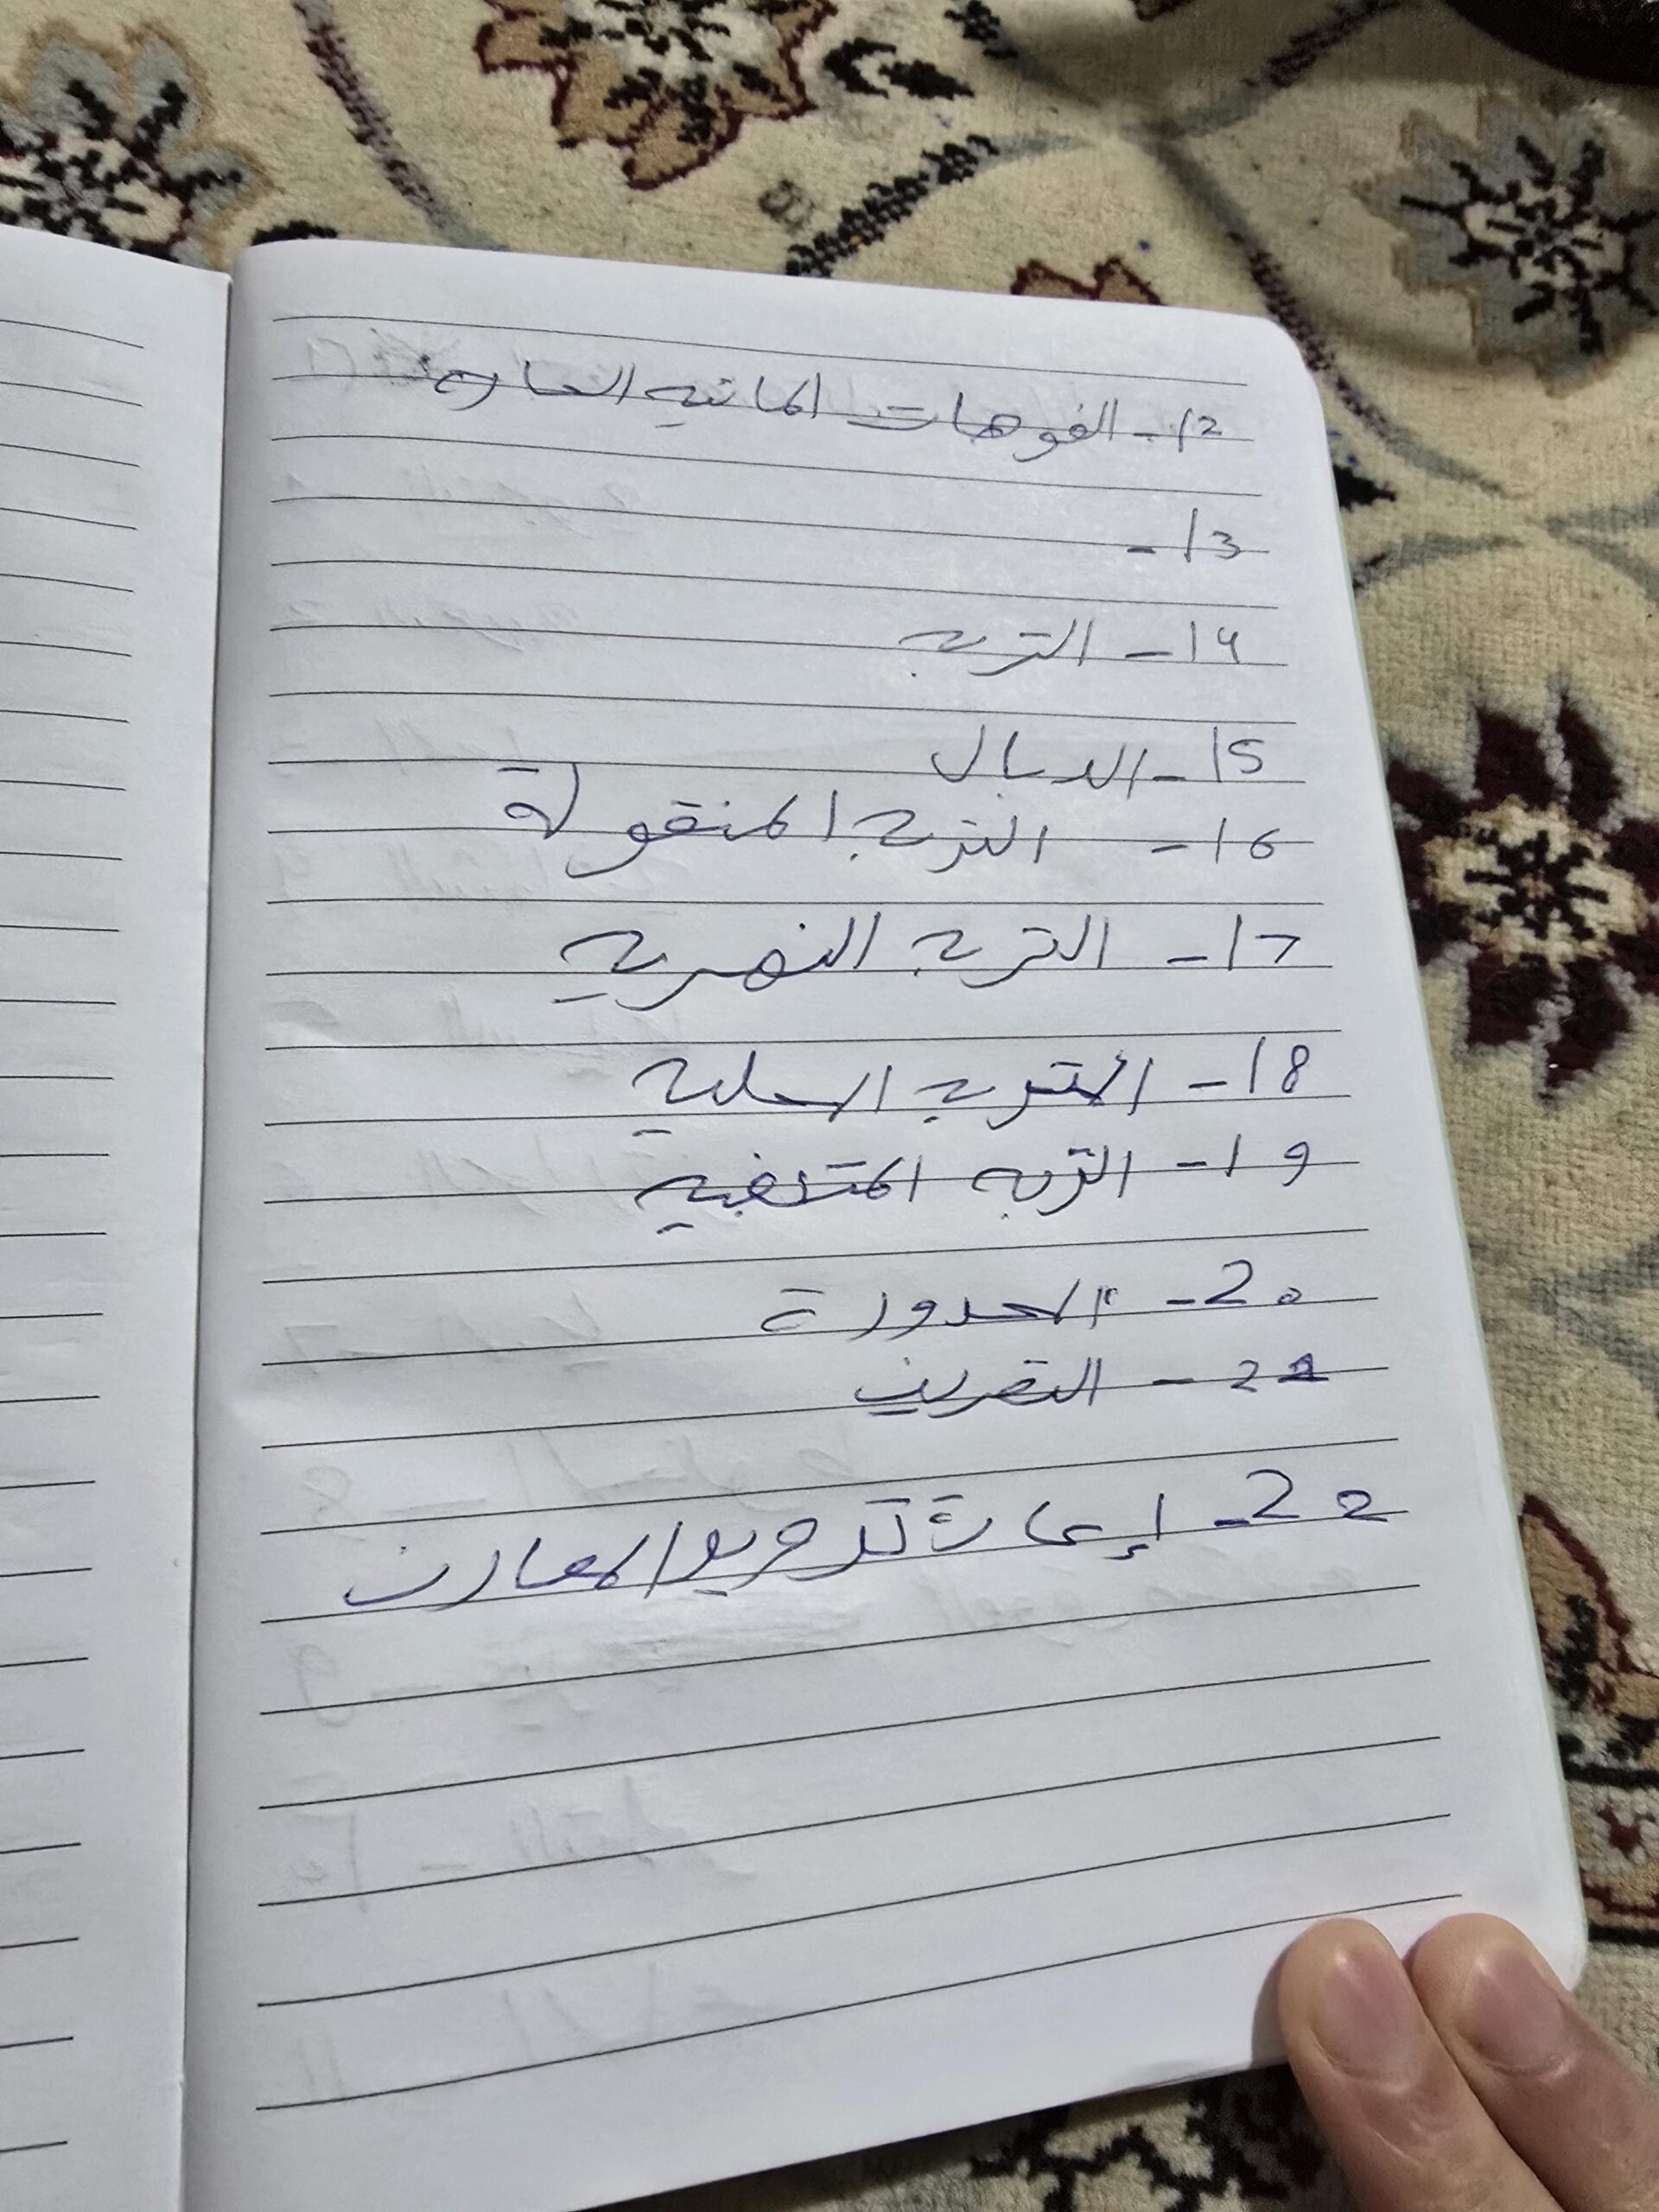 12- الفوهات المائيه الحاره
13-
14- التربه
15- الدبال
16- التربه المنقولة
17- التربه النهريه
18- التربه السطحيه
19- التربه المتبقيه
20- الحدورة
21- التعريف
22- إعادة تدوير المعادن